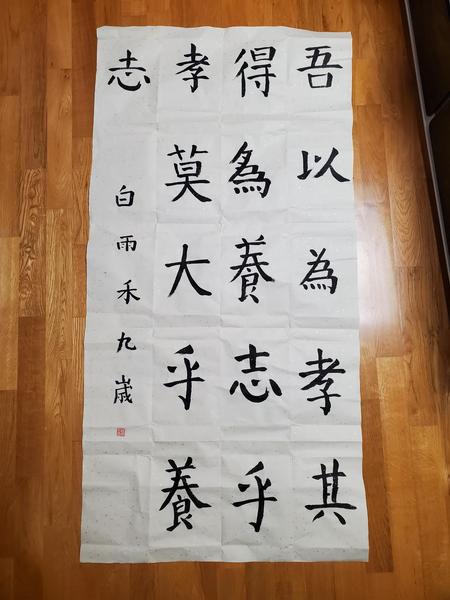 吾以為孝其
得為養志乎
孝莫大乎養
志
白雨禾九歲